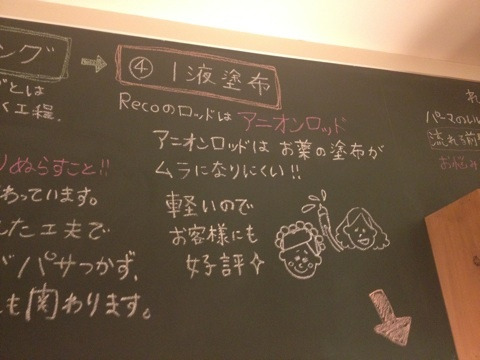 ング
ごとは
く工程。
りぬらすこと!!
わっています。
した工夫で
パサつかず、
も関わります。
④ 1液塗布
Recoのロッドは アニオンロッド
アニオンロッドは お薬の塗布が
ムラになりにくい!!
軽いので
お客様にも
好評✧
パーマのい
流れる前
お悩み